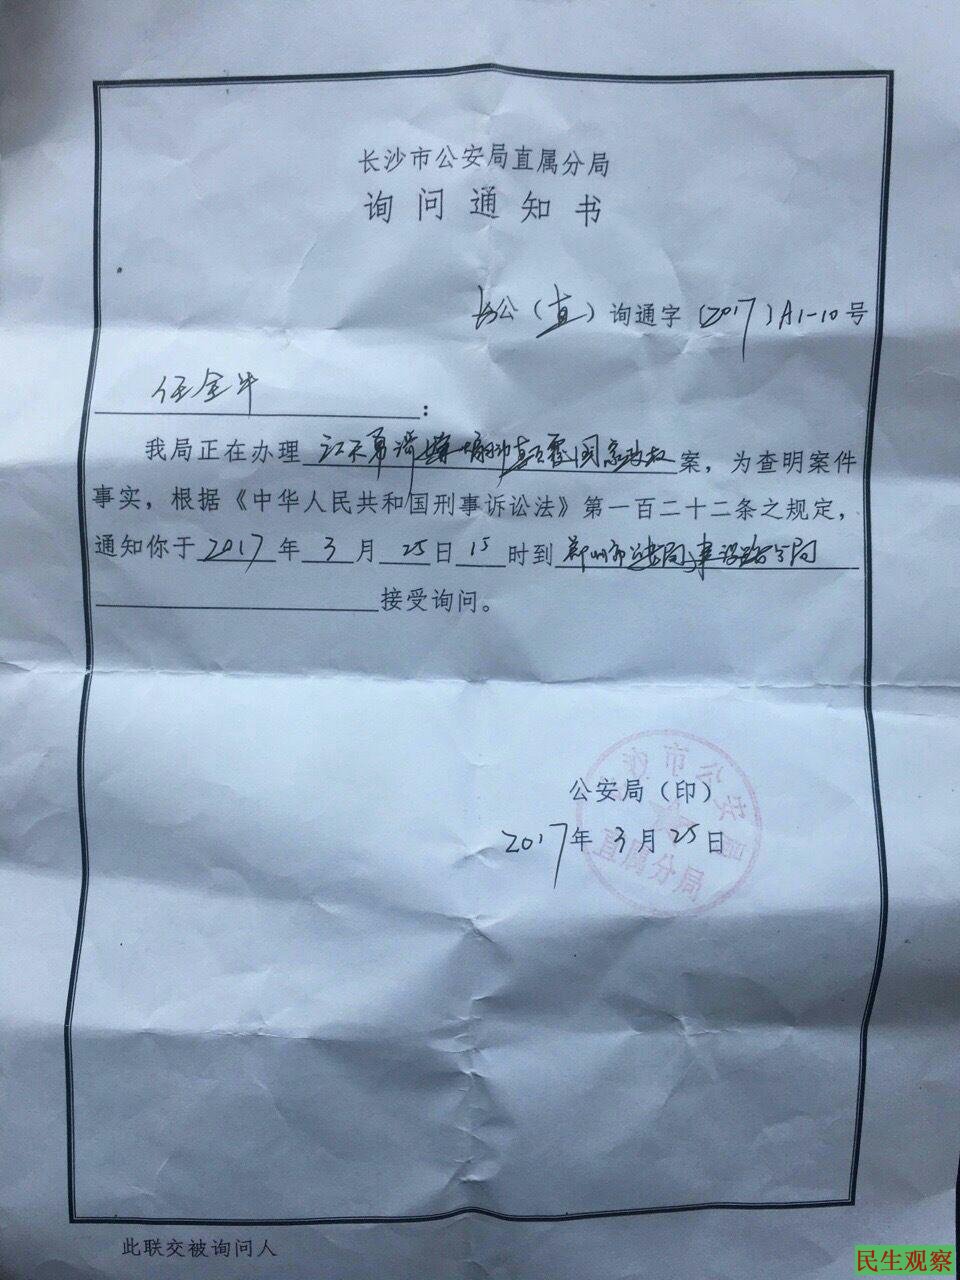 长沙市公安局直属分局
询问通知书
长公（直）询通字〔2017〕A1-10号
任全牛：
我局正在办理江天勇涉嫌煽动颠覆国家政权案，为查明案件
事实，根据《中华人民共和国刑事诉讼法》第一百二十二条之规定，
通知你于2017年3月25日15时到郑州市公安局建设路分局
接受询问。
公安局（印）
2017年3月25日
沙市公安局
直属分局
此联交被询问人
民生观察